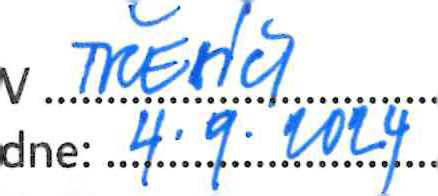 V TŘEBÍČI
dne: 4. 9. 2024